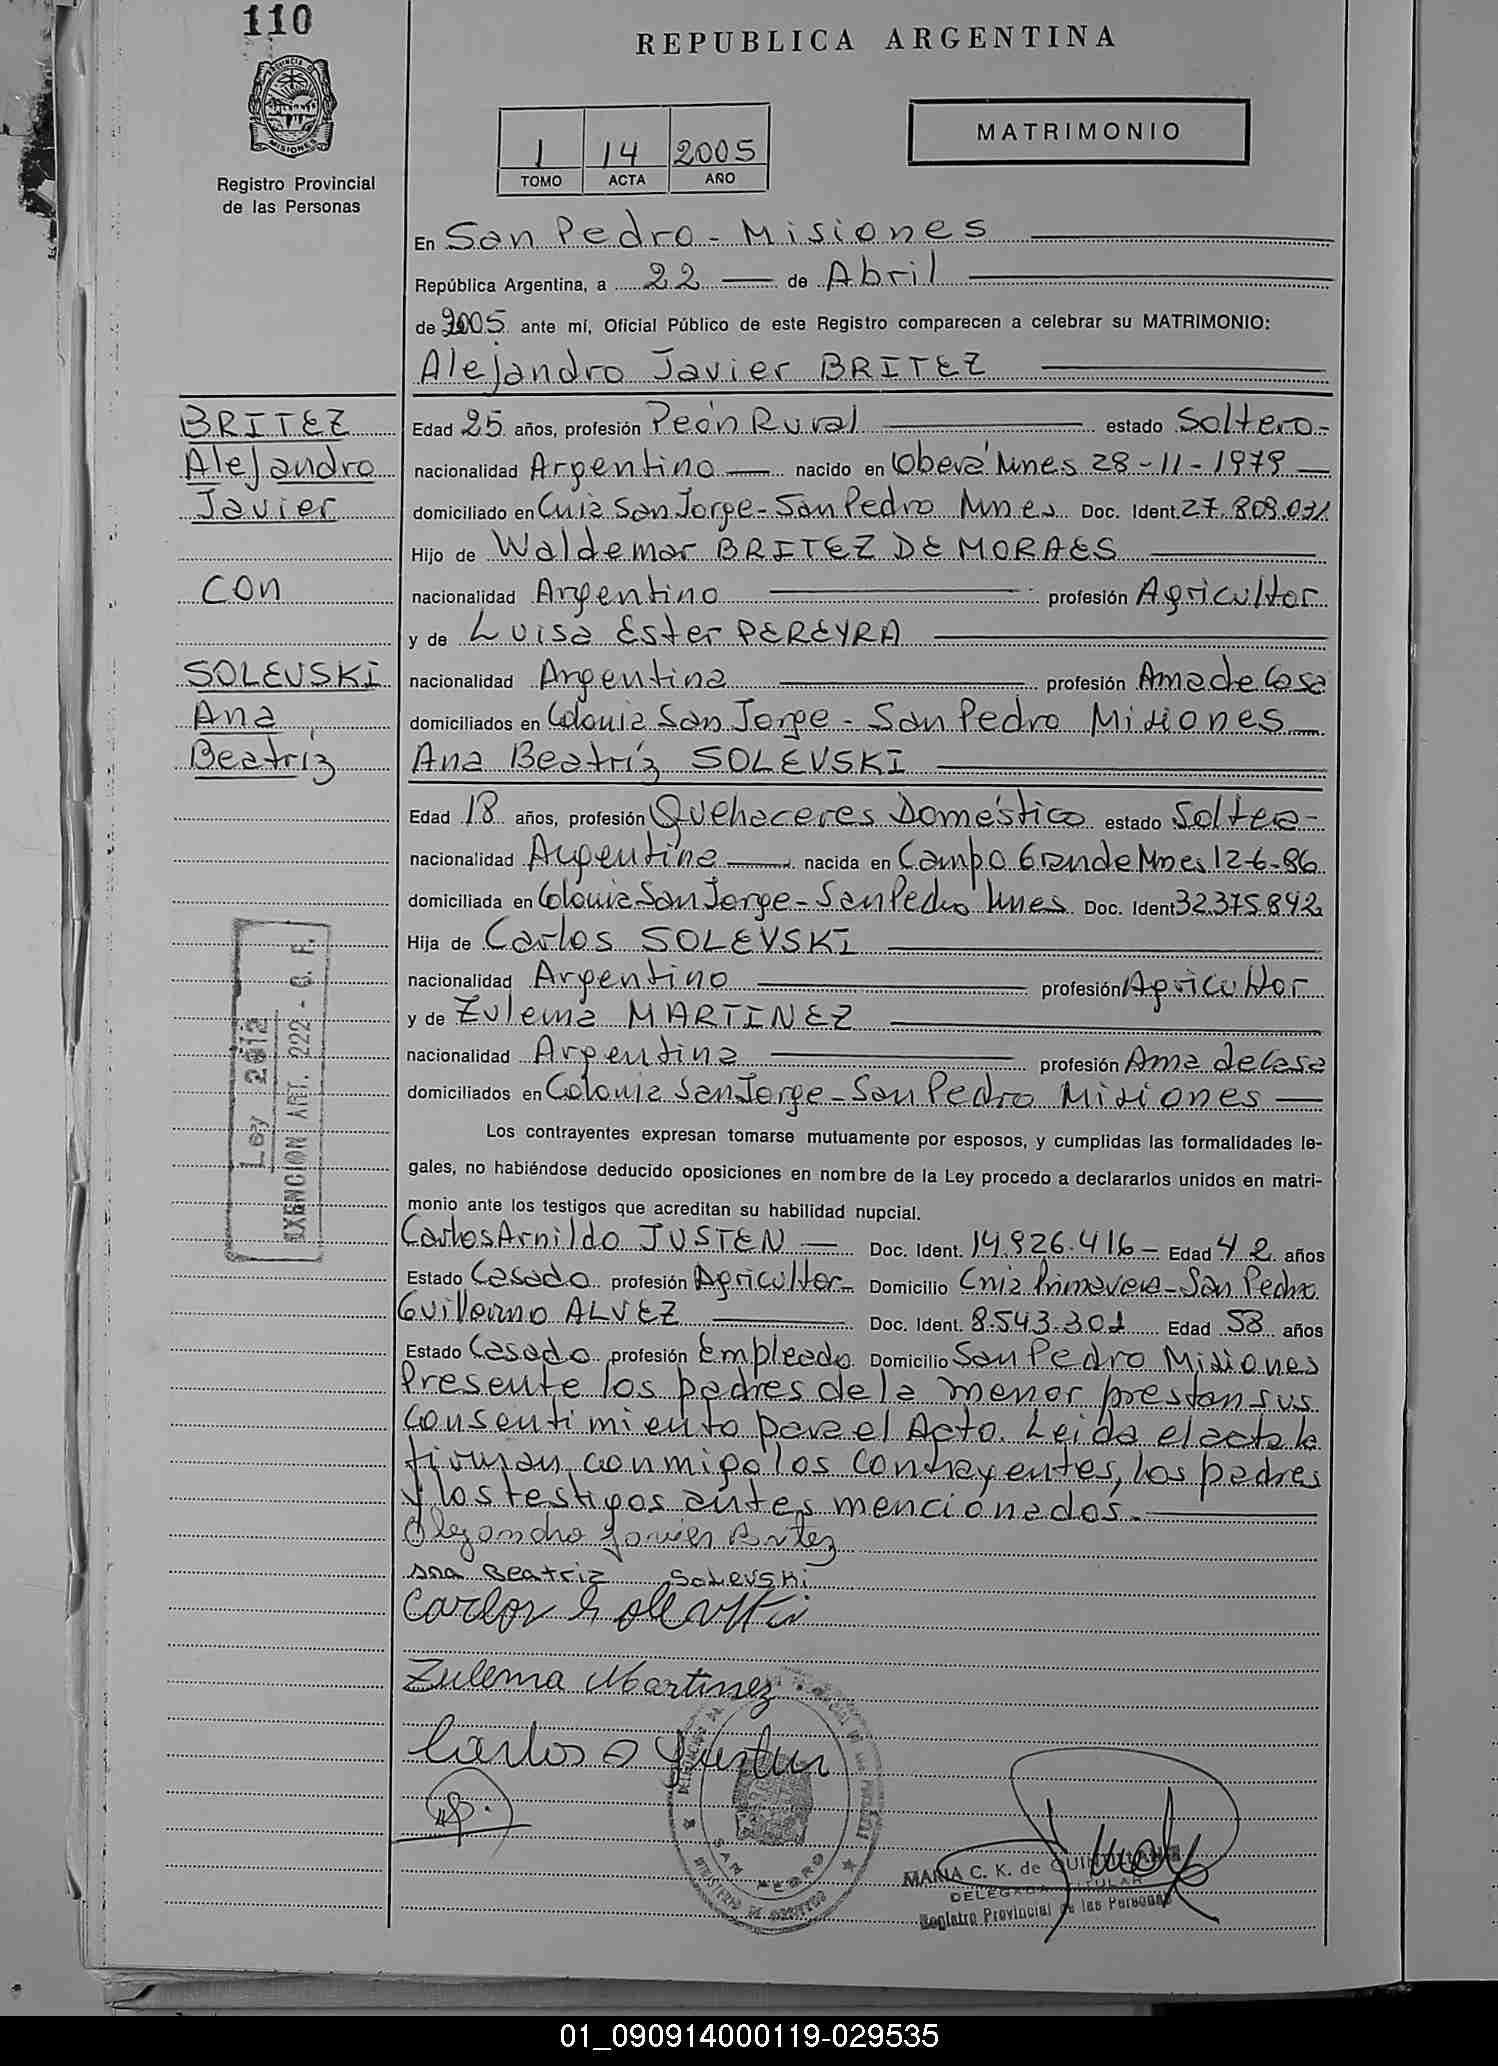 110
REPUBLICA ARGENTINA
PROVINCIA DE MISIONES
Registro Provincial
de las Personas
1 14 2005
TOMO ACTA AÑO
MATRIMONIO
En San Pedro - Misiones
República Argentina, a 22 de Abril
de 2005 ante mí, Oficial Público de este Registro comparecen a celebrar su MATRIMONIO:
Alejandro Javier BRITEZ
BRITEZ
Alejandro
Javier
con
SOLEVSKI
Ana
Beatríz
Edad 25 años, profesión Peón Rural estado Soltero-
nacionalidad Argentino nacido en Oberá Mnes 28-11-1979
domiciliado en Cnia San Jorge - San Pedro Mnes Doc. Ident. 27.809.031
Hijo de Waldemar BRITEZ DE MORAES
nacionalidad Argentino profesión Agricultor
y de Luisa Ester PEREYRA
nacionalidad Argentina profesión Ama de Casa
domiciliados en Colonia San Jorge - San Pedro Misiones
Ana Beatríz SOLEVSKI
Edad 18 años, profesión Quehaceres Doméstico estado Soltera-
nacionalidad Argentina nacida en Campo Grande Mnes 12-6-86
domiciliada en Colonia San Jorge - San Pedro Mnes Doc. Ident 32375.842
Hija de Carlos SOLEVSKI
nacionalidad Argentino profesión Agricultor
y de Zulema MARTINEZ
nacionalidad Argentina profesión Ama de Casa
domiciliados en Colonia San Jorge - San Pedro Misiones
Ley
EXENCION ART. 222 -
Los contrayentes expresan tomarse mutuamente por esposos, y cumplidas las formalidades le-
gales, no habiéndose deducido oposiciones en nombre de la Ley procedo a declararlos unidos en matri-
monio ante los testigos que acreditan su habilidad nupcial.
Carlos Arnildo JUSTEN Doc. Ident. 14.926.416 - Edad 42 años
Estado Casado profesión Agricultor Domicilio Cnia Primavera - San Pedro
Guillermo ALVEZ Doc. Ident. 8.543.301 Edad 53 años
Estado Casado profesión Empleado Domicilio San Pedro Misiones
Presente los padres de la menor prestan sus
consentimiento para el Acto. Leida el acta la
firman conmigo los contrayentes, los padres
y los testigos antes mencionados.
Alejandro Javier Britez
Ana Beatriz Solevski
Carlos Solevski
Zulema Martinez
Carlos A Justen
SAN PEDRO
MARIA C. K. de
DELEGADA TITULAR
Registro Provincial de las Personas
01_090914000119-029535